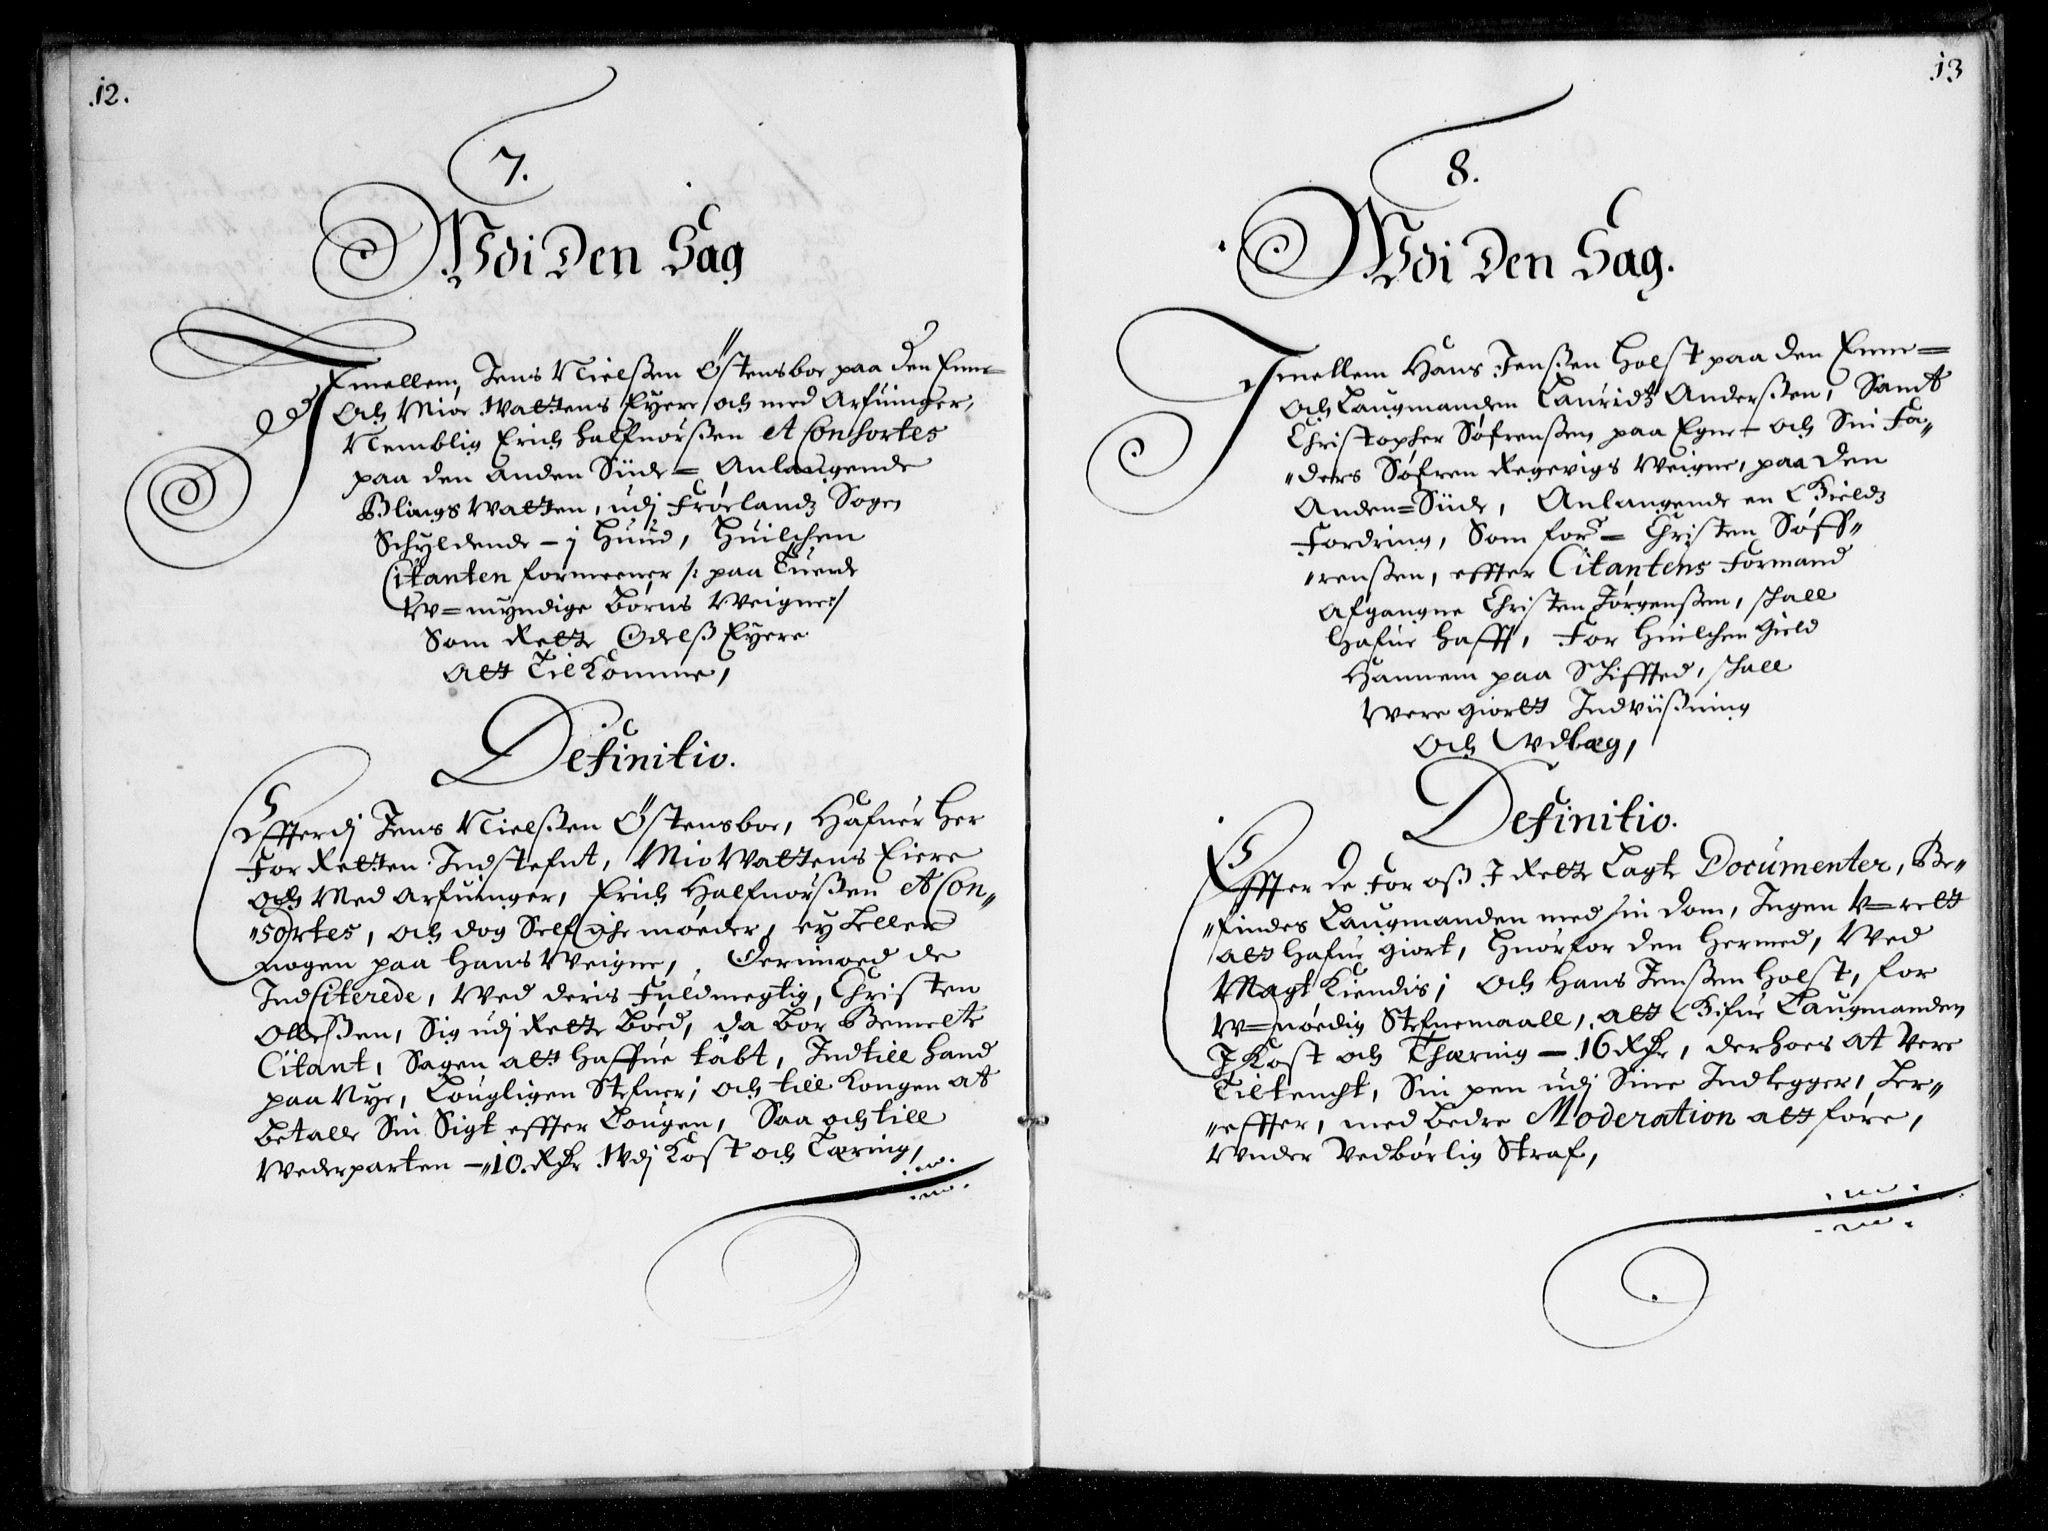 12.
7.
Wdi Den Sag
Jmellem, Jens Nielßen Östensboe paa den Enne=
Och Mioe Wattens Eyere och med Arfuinger,
Nemblig Erich Halfuorßen et Consortes
paa den anden Siide = Anlangende
Blings Watten, udj Frölandz Sogen
Schyldende – j Huud, Huilchen
Citanten formeener /: paa Tuende
W=myndige Börns Weigne :/
Som Rette Odelß Eyere
Att TilKomme,
Definitiv.
Effterdj Jens Nielßen Östensboe, Hafuer Her
For Retten Indstefnt, Mio Wattens Eiere
och Med Arfuinger, Erich Halfuorßen et Con„
„sortes, och dog Self iche möeder, ey heller
nogen paa Hans Weigne, Oerimoed de
IndCiterede, Wed deris Fuldmegtig, Christen
Olleßen, Sig udj Rette Böed, da bör Bemelte
Citant, Sagen att Haffue tabt, Indtill Hand
paa Nye, Lougligen Stefner; och till Kongen at
Betalle Sin Sigt effter Lougen, Saa och till
Wederparten –„10. Rdr Wdj Kost och Tæring,
13
8.
Wdi Den Sag.
Jmellem Hans Jenßen Holst paa den Enne=
Och Laugmanden Lauridtz Anderßen, Samt
Christopher Söfrenßen paa Egne – och Sin Fa„
„ders Söfren Regevigs Weigne, paa den
Anden=Siide, Anlangende en Gieldz
Fordring, Som for– Christen Söff„
„renßen, effter Citantens Formand
Afgangne Christen Jörgenßen, shall
Hafue Hafft, For Huilchen Gield
Hannem paa Schiffted, shall
Were giortt Indviißning
Och Wdlæg,
Definitiv.
Effter de For oß I Rette Lagte Documenter, Be„
„findes Laugmanden med sin Dom, Ingen W=rett
att Hafue giort, Huorfor den Hermed, Wed
Magt Kiendis; Och Hans Jenßen Holst, for
W=nöedig Stefnemaall, att Gifue Laugmanden
I Kost och Thæring – 16 Rdr, derhoes at Vere
Tiltencht, Sin pen udj Sine Indlegger, Her„
„effter, med bedre Moderation att före,
Wnder Vedbörlig Straf,